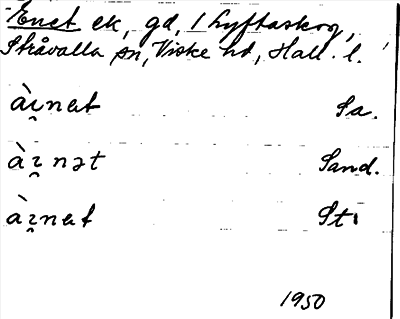 Enet ek, gd, 1 Lyftaskog,
Stråvalla sn, Viske hd, Hall. l.
àı̯nət Sa.
àı̯nət Sand.
àı̯nət St.
1950